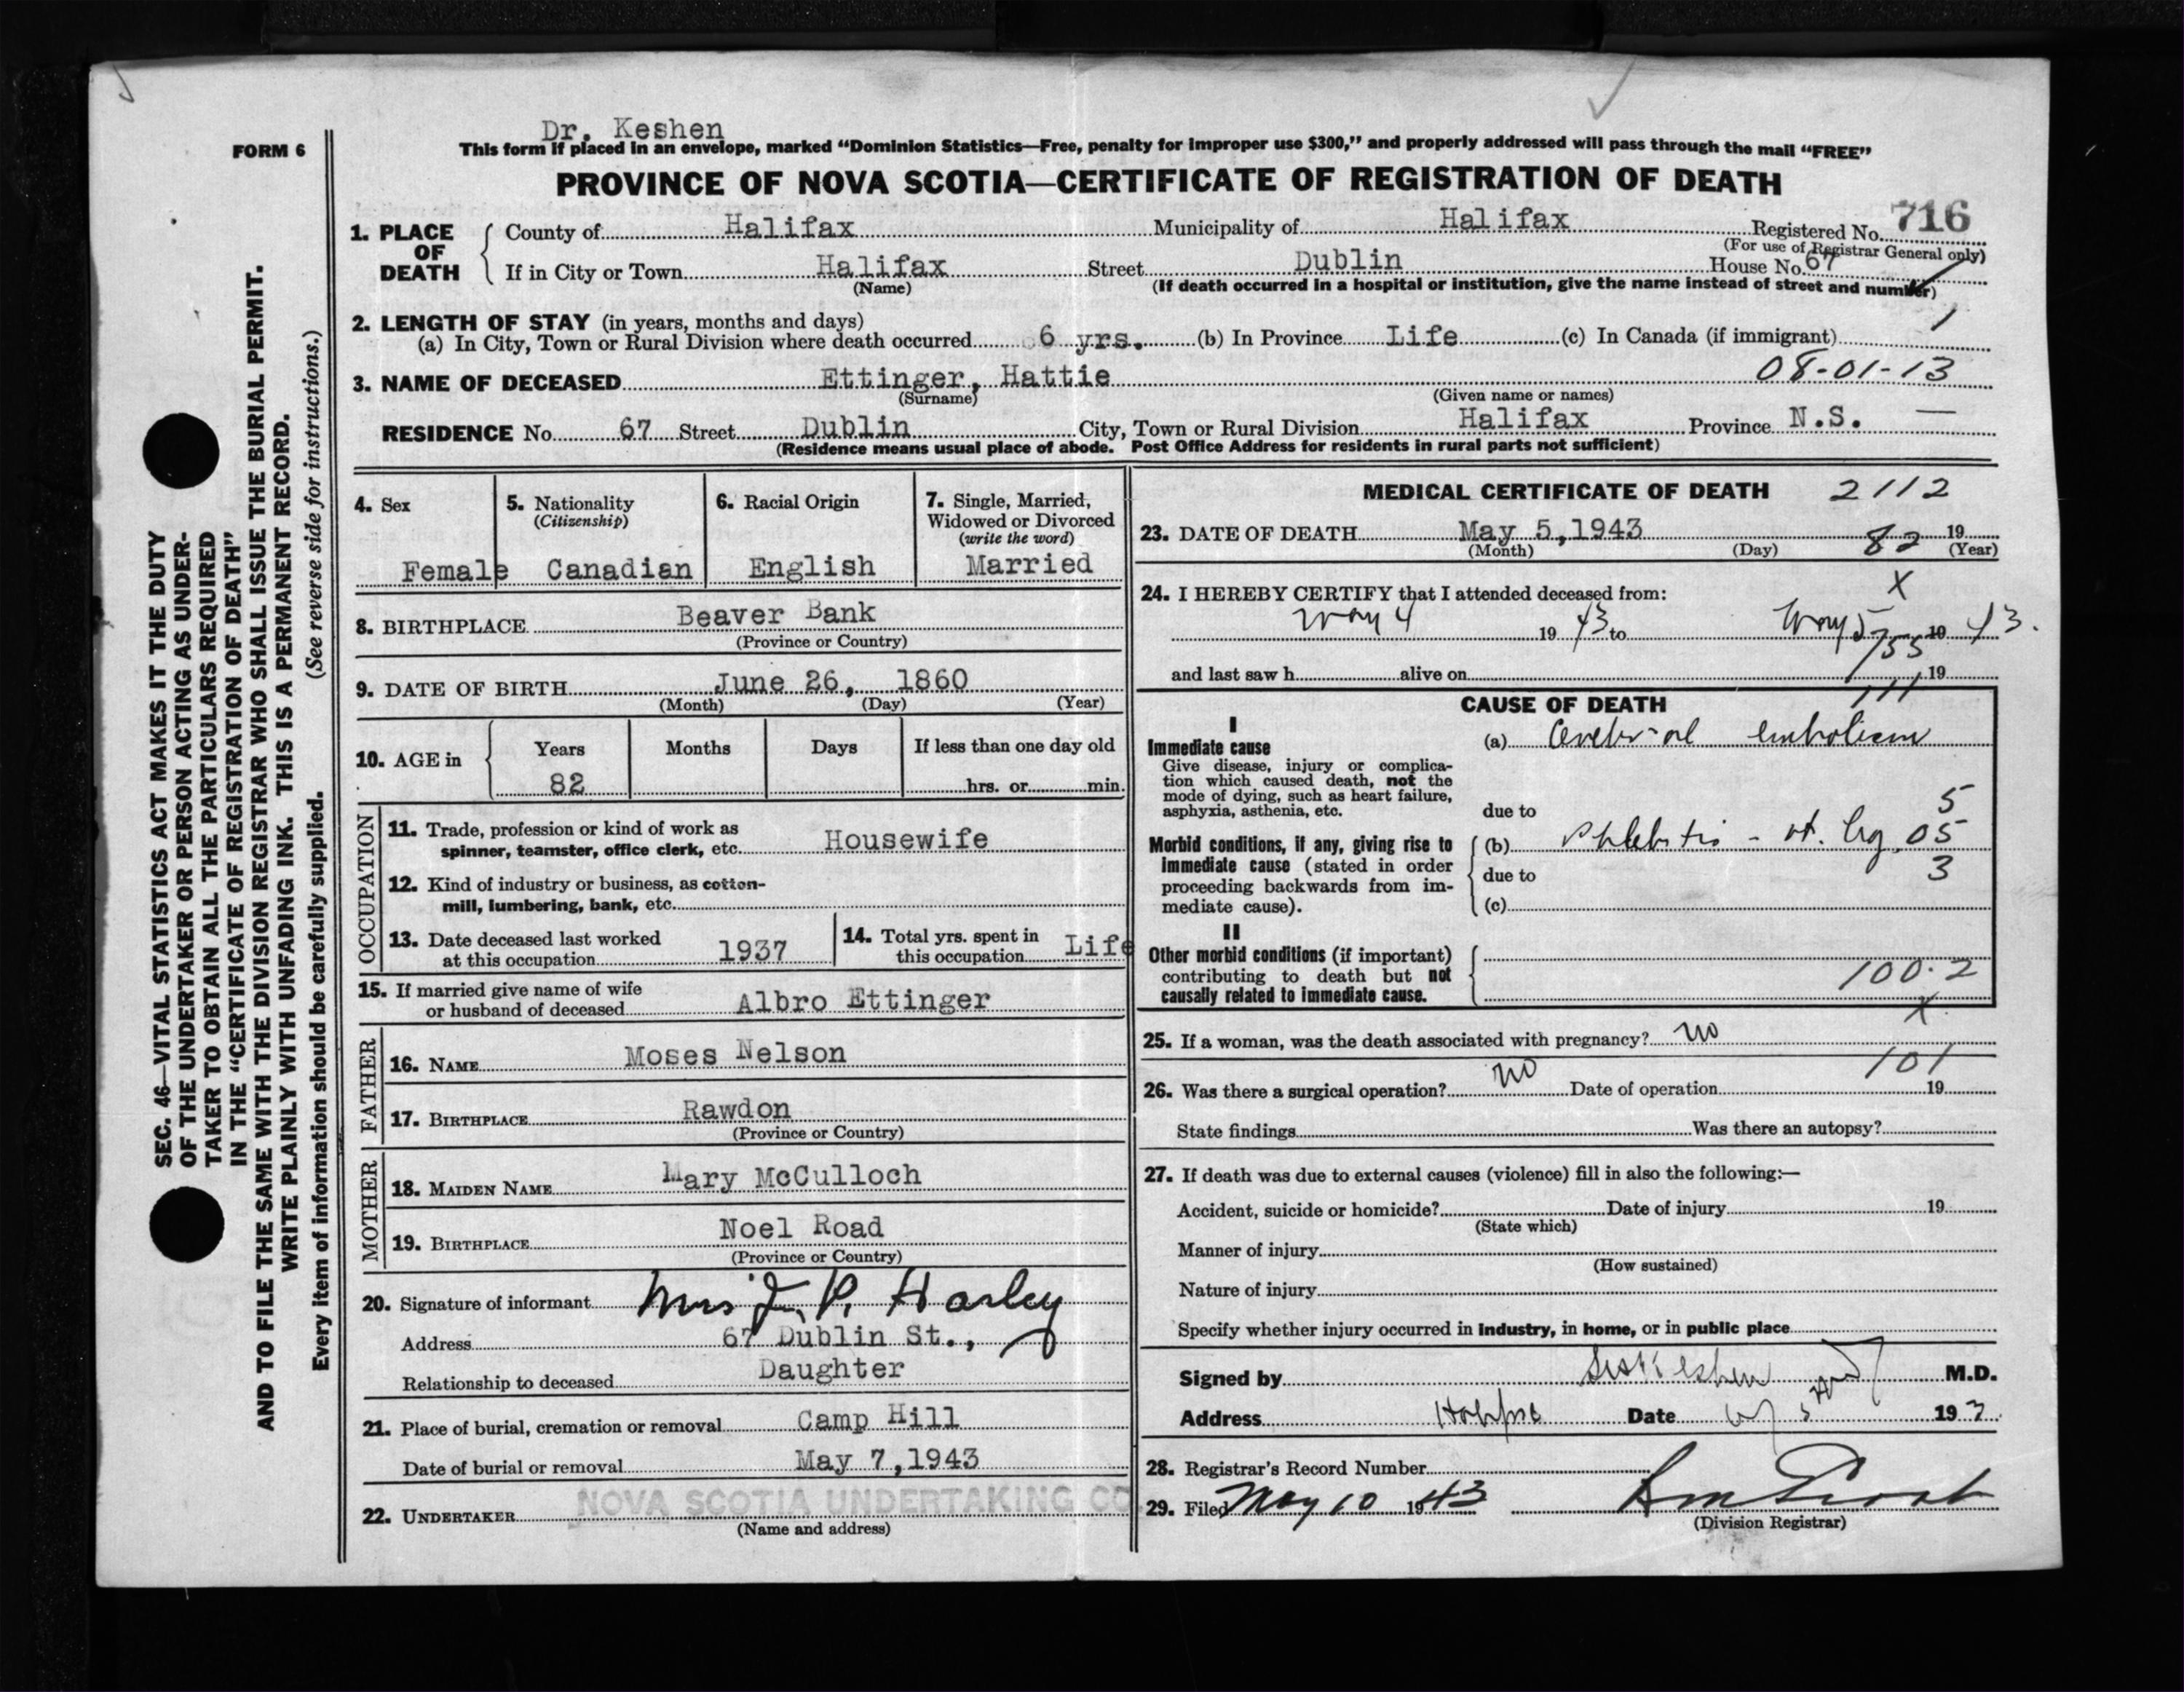 Dr. Keshen
FORM 6
This form if placed in an envelope, marked “Dominion Statistics—Free, penalty for improper use $300,” and properly addressed will pass through the mail “FREE”
PROVINCE OF NOVA SCOTIA—CERTIFICATE OF REGISTRATION OF DEATH
1. PLACE OF DEATH County of Halifax Municipality of Halifax Registered No. 716
(For use of Registrar General only)
If in City or Town Halifax Street Dublin House No. 67
(Name) (If death occurred in a hospital or institution, give the name instead of street and number)
2. LENGTH OF STAY (in years, months and days) 1
(a) In City, Town or Rural Division where death occurred 6 yrs. (b) In Province Life (c) In Canada (if immigrant)
3. NAME OF DECEASED Ettinger, Hattie 08-01-13
(Surname) (Given name or names)
RESIDENCE No. 67 Street Dublin City, Town or Rural Division Halifax Province N.S. —
(Residence means usual place of abode. Post Office Address for residents in rural parts not sufficient)
4. Sex
Female
5. Nationality
(Citizenship)
Canadian
6. Racial Origin
English
7. Single, Married,
Widowed or Divorced
(write the word)
Married
8. BIRTHPLACE Beaver Bank
(Province or Country)
9. DATE OF BIRTH June 26, 1860
(Month) (Day) (Year)
10. AGE in Years Months Days If less than one day old
82 hrs. or min.
OCCUPATION
11. Trade, profession or kind of work as
spinner, teamster, office clerk, etc. Housewife
12. Kind of industry or business, as cotton-
mill, lumbering, bank, etc.
13. Date deceased last worked
at this occupation 1937
14. Total yrs. spent in
this occupation Life
15. If married give name of wife
or husband of deceased Albro Ettinger
FATHER
16. NAME Moses Nelson
17. BIRTHPLACE Rawdon
(Province or Country)
MOTHER
18. MAIDEN NAME Mary McCulloch
19. BIRTHPLACE Noel Road
(Province or Country)
20. Signature of informant Mrs J. P. Harley
Address 67 Dublin St.,
Relationship to deceased Daughter
21. Place of burial, cremation or removal Camp Hill
Date of burial or removal May 7, 1943
22. UNDERTAKER NOVA SCOTIA UNDERTAKING CO.
(Name and address)
MEDICAL CERTIFICATE OF DEATH 2112
23. DATE OF DEATH May 5, 1943 82 19
(Month) (Day) (Year)
24. I HEREBY CERTIFY that I attended deceased from: X
May 4 19 43 to May 5 19 43.
755
and last saw h alive on 19
111
CAUSE OF DEATH
I
Immediate cause
Give disease, injury or complica-
tion which caused death, not the
mode of dying, such as heart failure,
asphyxia, asthenia, etc.
(a) Cerebral embolism
due to 5
Morbid conditions, if any, giving rise to
immediate cause (stated in order
proceeding backwards from im-
mediate cause).
(b) Phlebitis - rt. leg. 05
due to 3
(c)
II
Other morbid conditions (if important)
contributing to death but not
causally related to immediate cause.
100.2
X
25. If a woman, was the death associated with pregnancy? no
101
26. Was there a surgical operation? no Date of operation 19
State findings Was there an autopsy?
27. If death was due to external causes (violence) fill in also the following:—
Accident, suicide or homicide? Date of injury 19
(State which)
Manner of injury
(How sustained)
Nature of injury
Specify whether injury occurred in industry, in home, or in public place
Signed by Keshen M.D.
Address Date 5 19
28. Registrar's Record Number
29. Filed May 10 1943
(Division Registrar)
SEC. 46—VITAL STATISTICS ACT MAKES IT THE DUTY
OF THE UNDERTAKER OR PERSON ACTING AS UNDER-
TAKER TO OBTAIN ALL THE PARTICULARS REQUIRED
IN THE “CERTIFICATE OF REGISTRATION OF DEATH”
AND TO FILE THE SAME WITH THE DIVISION REGISTRAR WHO SHALL ISSUE THE BURIAL PERMIT.
WRITE PLAINLY WITH UNFADING INK. THIS IS A PERMANENT RECORD.
Every item of information should be carefully supplied. (See reverse side for instructions.)